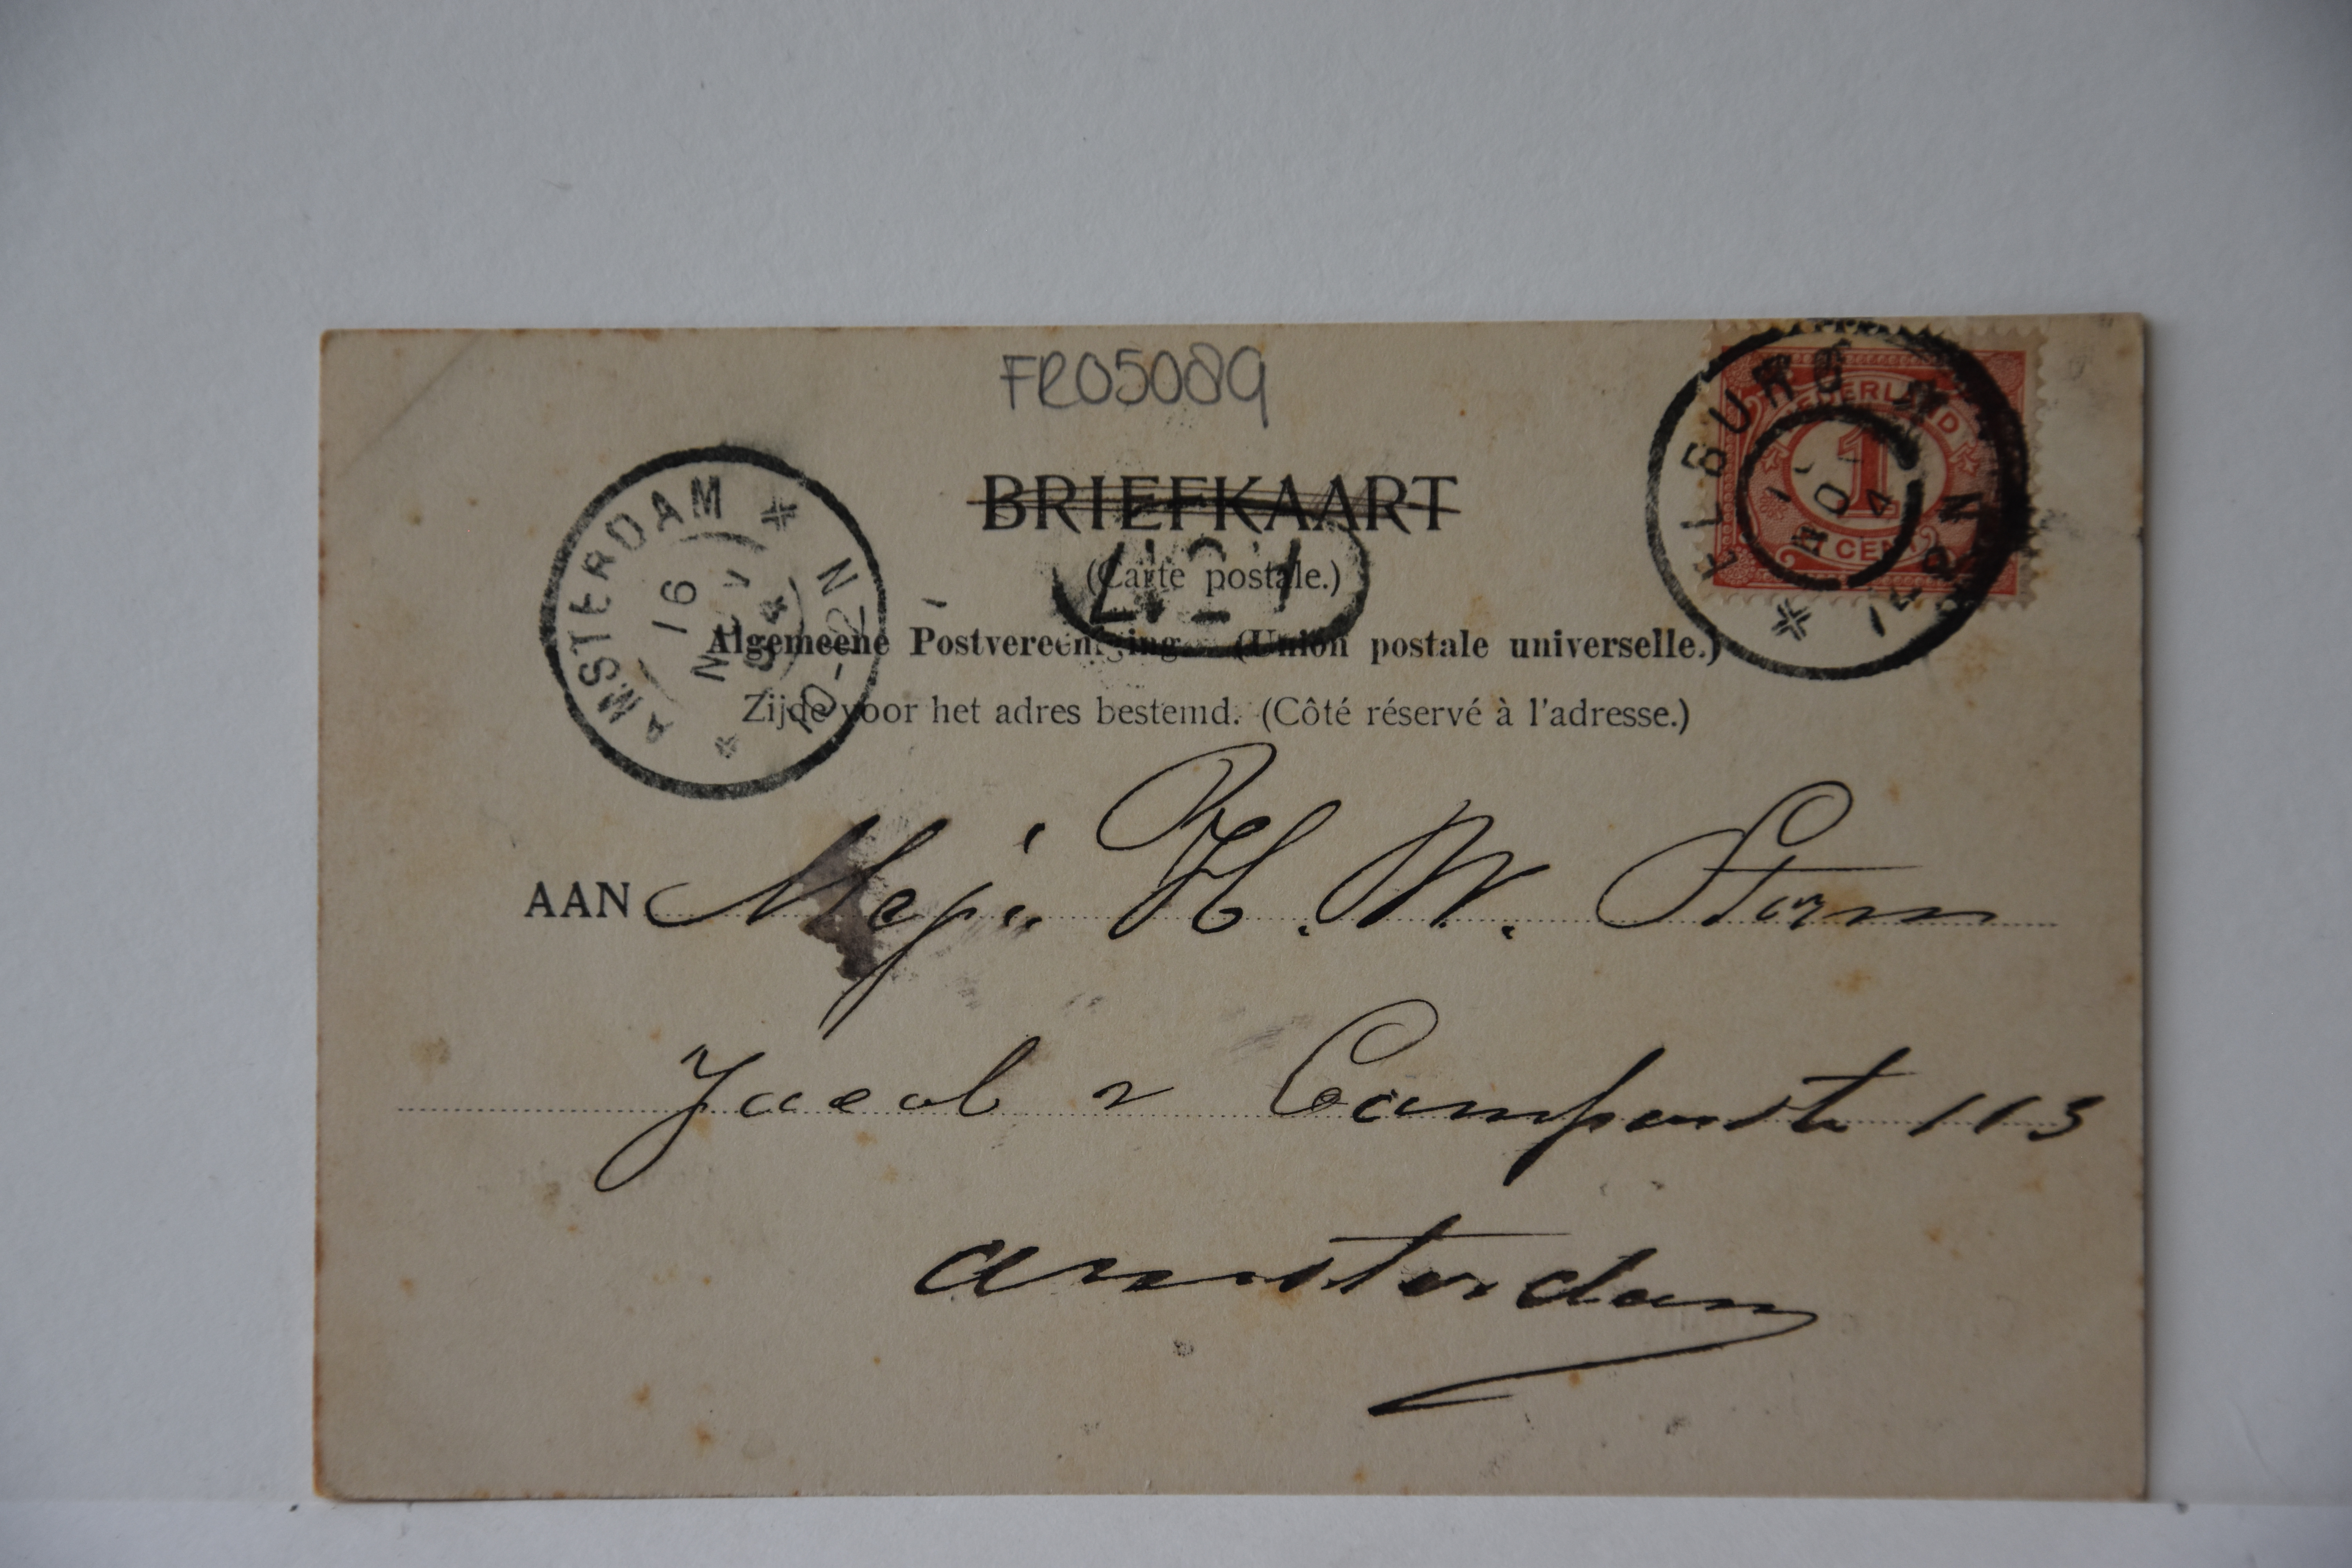 FR05089
BRIEFKAART
(Carte postale.)
Algemeene Postvereeniging. (Union postale universelle.)
Zijde voor het adres bestemd. (Côté réservé à l'adresse.)
AMSTERDAM
16 NOV 04
10-12 N
ELBURG
NOV 04
NEDERLAND
1
1 CENT
AAN Mejr. H. W. Storm
Jacob v Campenstr 113
Amsterdam